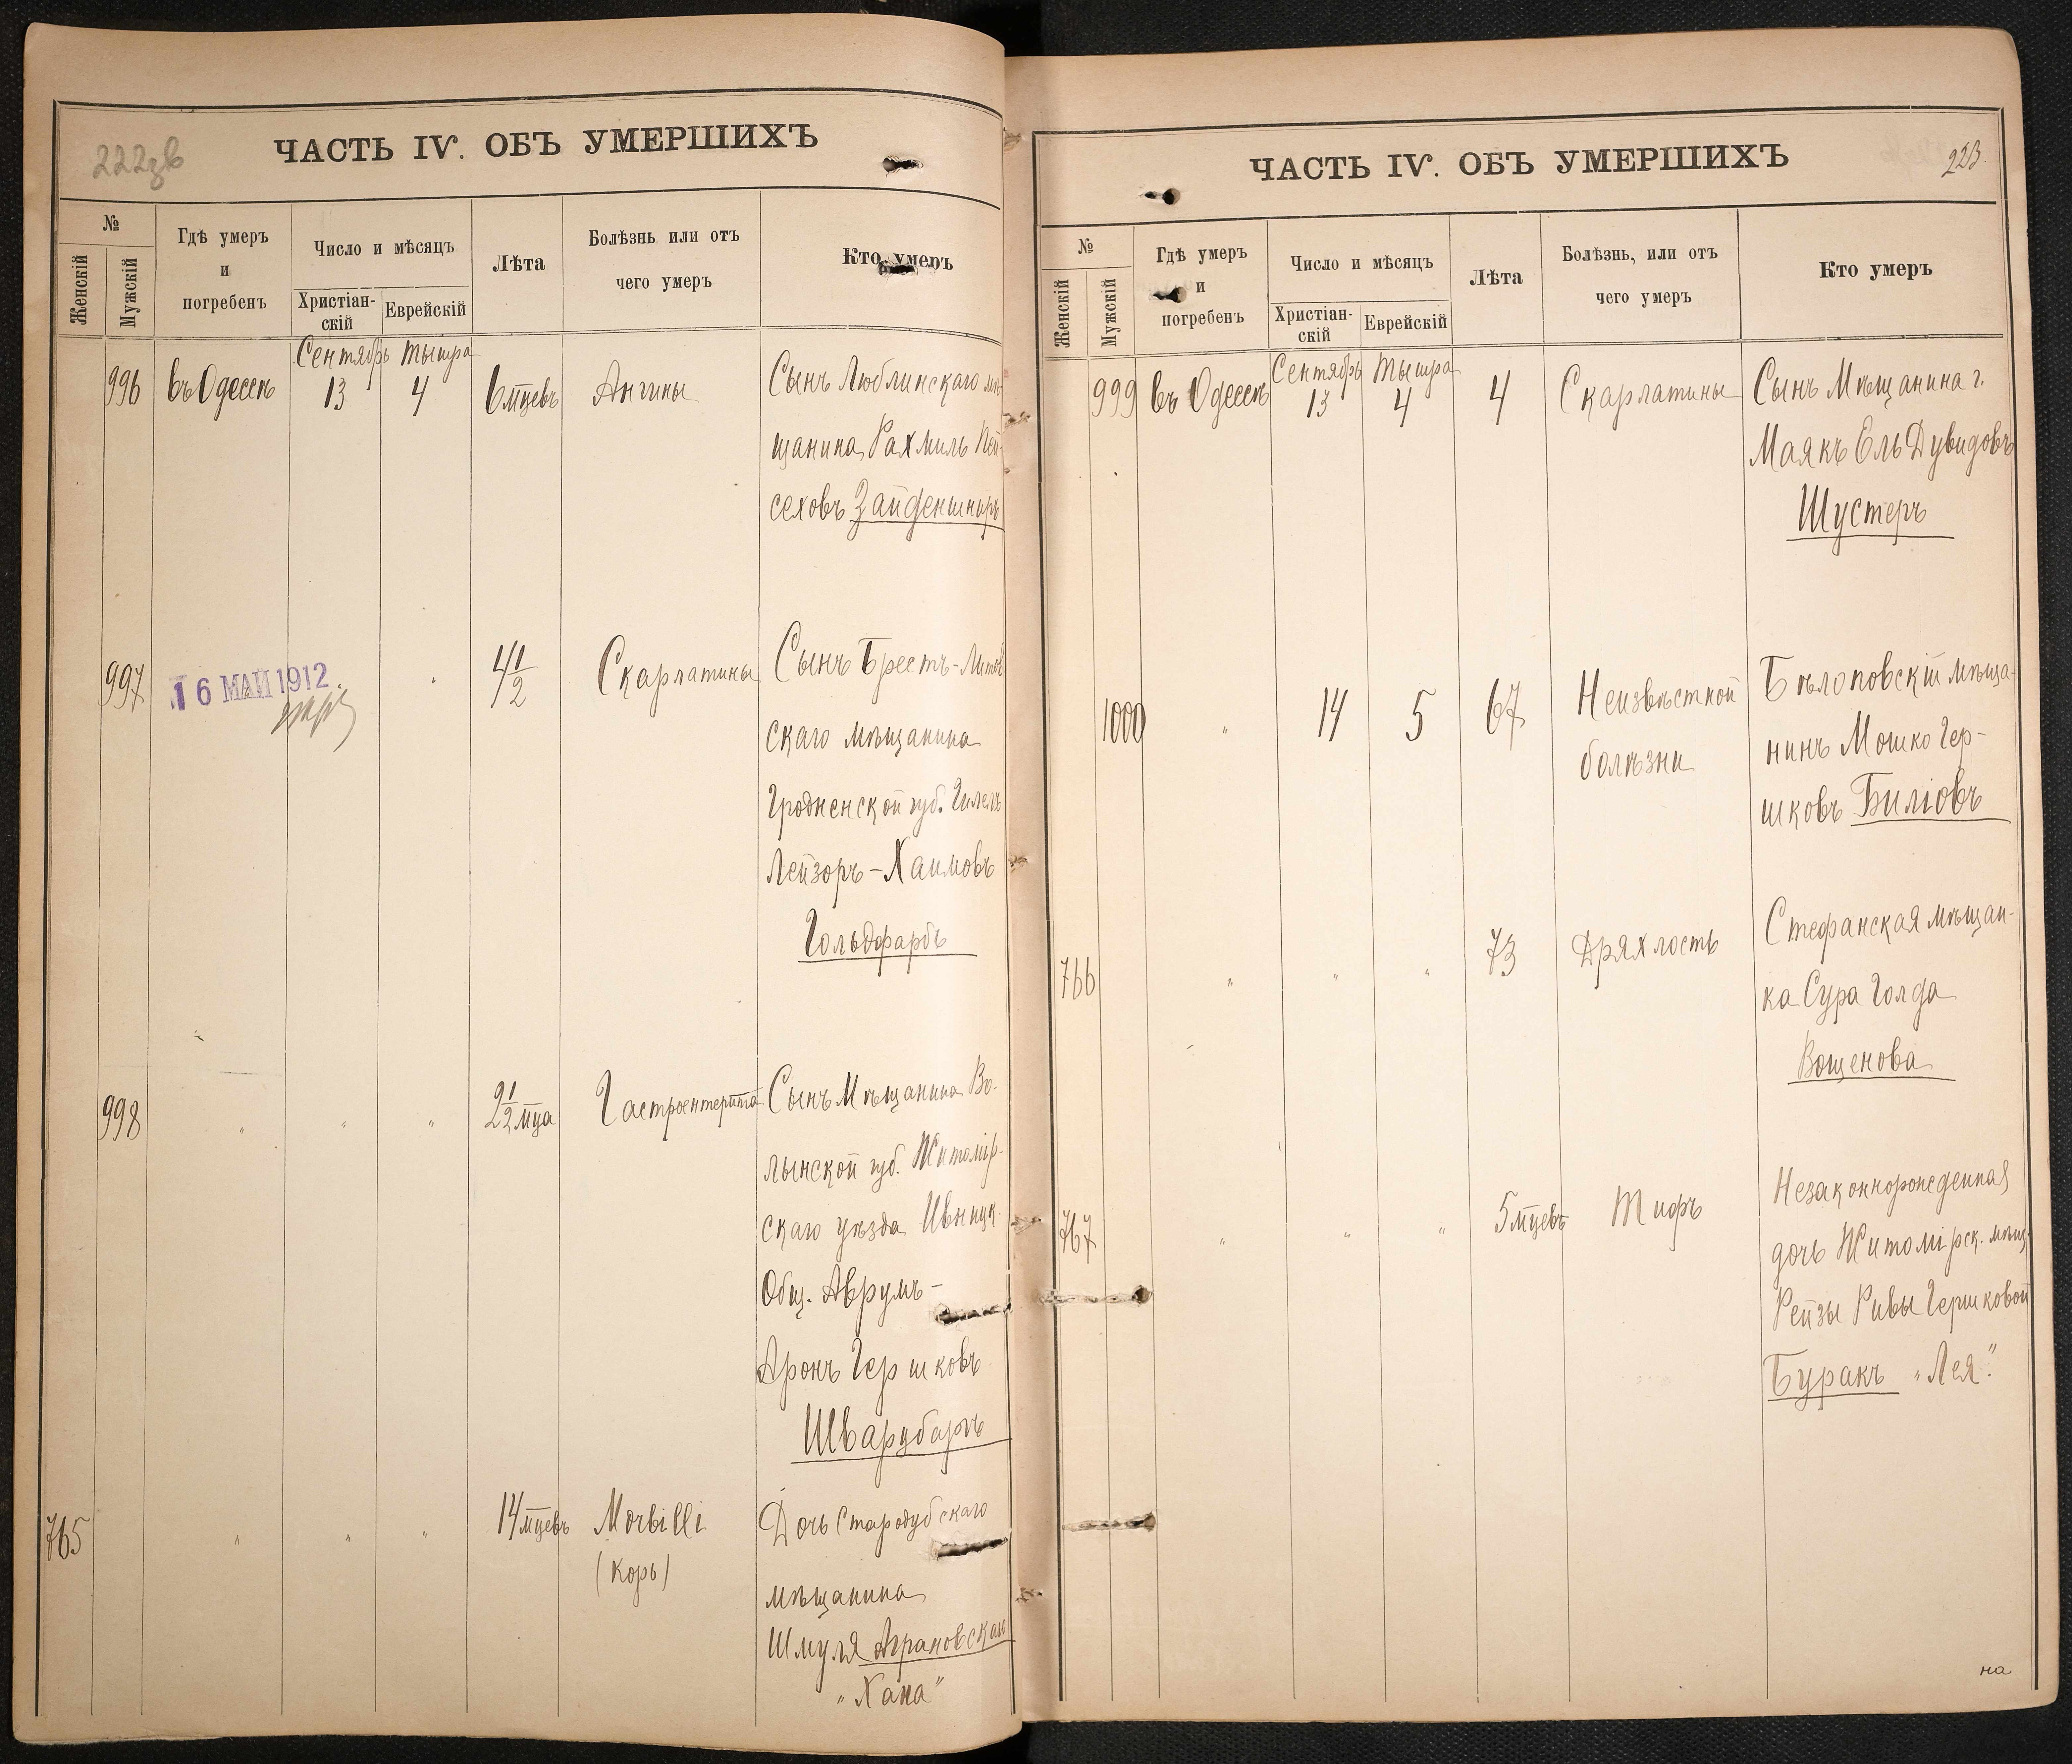 222зв
ЧАСТЬ IV. ОБЪ УМЕРШИХЪ
№
Женскій
Мужскій
Гдѣ умеръ
и
погребенъ
Число и мѣсяцъ
Христіан-
скій
Еврейскій
Лѣта
Болѣзнь или отъ
чего умеръ
Кто умеръ
Сентябрь Тышра
996 въ Одессѣ 13 4 6 мцевъ Ангины Сынъ Люблинскаго мѣ-
щанина Рахмиль Пей-
сеховъ Зайденшниръ
997 16 МАЙ 1912 4 1/2 Скарлатины Сынъ Брестъ-Литов
скаго мѣщанина
Гродненской губ. Гилель
Лейзоръ-Хаимовъ
Гольдфарбъ
998 " " " 2 1/2 мца Гастроентерита Сынъ Мѣщанина Во-
лынской губ. Житомір-
скаго уѣзда Ивницк.
Общ. Аврумъ-
Аронъ Гершковъ
Шварцбаръ
765 " " " 14 мцевъ Morbilli Дочь Стародубскаго
(Корь)
мѣщанина
Шмуля Аграновскаго
"Хана"
ЧАСТЬ IV. ОБЪ УМЕРШИХЪ
223.
№
Женскій
Мужскій
Гдѣ умеръ
и
погребенъ
Число и мѣсяцъ
Христіан-
скій
Еврейскій
Лѣта
Болѣзнь, или отъ
чего умеръ
Кто умеръ
Сентябрь Тышра
999 въ Одессѣ 13 4 4 Скарлатины Сынъ Мѣщанина г.
Маякъ Ель Дувидовъ
Шустеръ
1000 " 14 5 67 Неизвѣстной Бѣлоповскій мѣща-
болѣзни нинъ Мошко Гер-
шковъ Биліовъ
766 " " " 73 Дряхлость Стефанская мѣщан-
ка Сура Голда
Вощенова
767 " " " 5 мцевъ Тифъ Незаконнорожденная
дочь Житомірск. мѣщ.
Рейзы Ривы Гершковой
Буракъ "Лея".
на